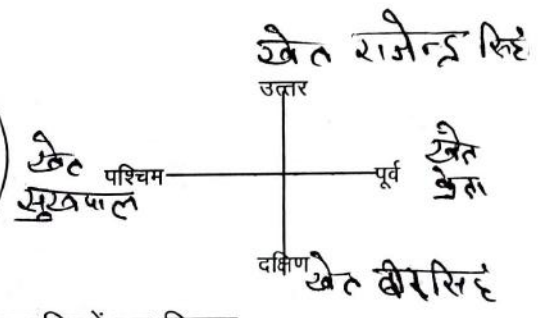 खेत राजेन्द्र सिंह
उत्तर
खेत
सुखपाल
पश्चिम
पूर्व
खेत
क्रेता
दक्षिण
खेत बीरसिंह